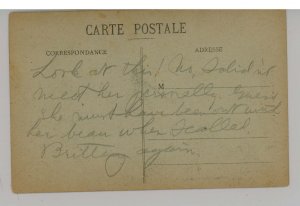 CARTE POSTALE
CORRESPONDANCE
ADRESSE
Look at this! No, I didn't
M
meet her personally. Guess
she must have been out with
her beau when I called.
Brittany again.